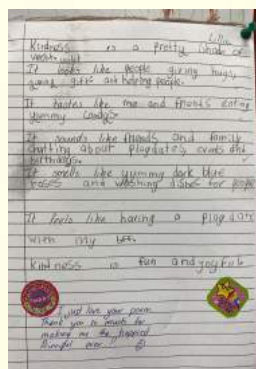 Lilly
Kindness is a pretty shade of
It looks like people giving hugs,
giving gifts and helping people.
It tastes like me and friends eating
yummy candy.
It sounds like friends and family
chatting about playdates, events and
birthdays.
It smells like yummy dark blue
roses and washing dishes for people
It feels like having a playdate
with my bff.
Kindness is fun and joyful.
I just love your poem.
Thank you so much for
making me the happiest
ever.